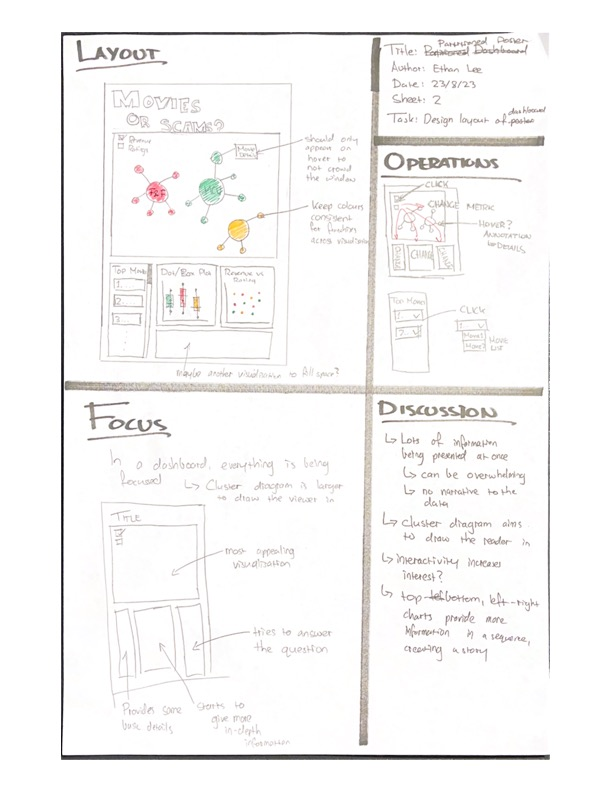 LAYOUT
MOVIES
OR SCAMS?
Revenue
Movie
Details
should only
appear on
hover to
not crowd
the window
Keep colours
consistent
for function
across visualizations
Top Movies
1.
2.
3...
Dot/Box Plot
Revenue vs
Rating
maybe another visualization to fill space?
Partitioned Poster
Title: Partitioned Dashboard
Author: Ethan Lee
Date: 23/8/23
Sheet: 2
dashboard
Task: Design layout of poster
OPERATIONS
CLICK
CHANGE METRIC
HOVER?
ANNOTATION
to DETAILS
CHANGE
Top Movies
1.
2.
CLICK
1.
Movie 1
Movie 2
MOVIE
LIST
FOCUS
In a dashboard, everything is being
focused
↳ Cluster diagram is larger
to draw the viewer in
TITLE
most appealing
visualization
tries to answer
the question
Provides some
base details
starts to
give more
in-depth
information
DISCUSSION
↳ Lots of information
being presented at once
↳ can be overwhelming
↳ no narrative to the
data
↳ cluster diagram aims
to draw the reader in
↳ interactivity increases
interest?
↳ top-left bottom, left-right
charts provide more
information in a sequence,
creating a story